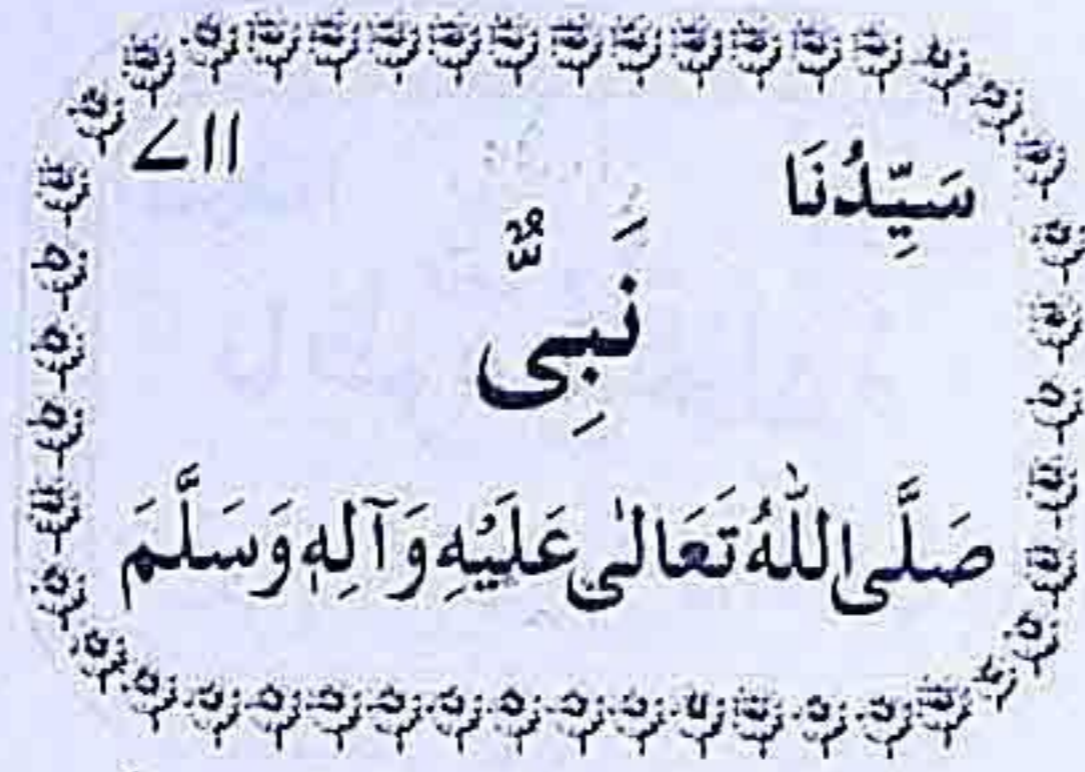 سَيِّدُنَا ۷۱۱
نَبِيٌّ
صَلَّى اللّٰهُ تَعَالٰى عَلَيْهِ وَآلِهٖ وَسَلَّمَ